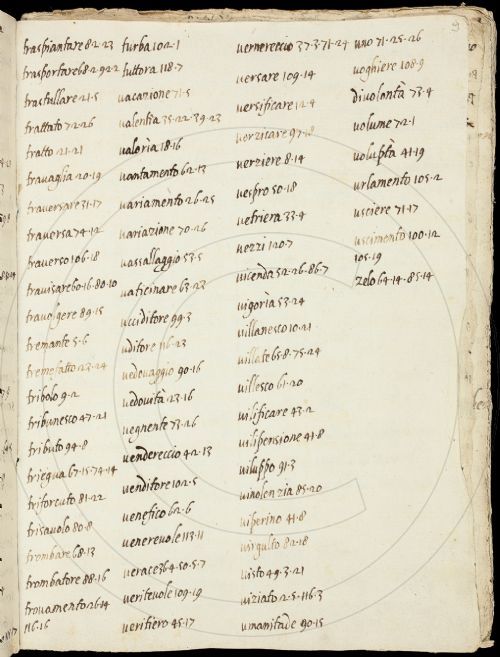 9
traspiantare 82.23
trasportare 68.2.92.2
trastullare 21.5
trattato 72.26
tratto 21.21
travaglia 20.19
traversare 31.17
traversa 74.12
traverso 106.18
travisare 60.16.80.10
travolgere 89.15
tremante 5.6
tremefatto 23.24
tribolo 9.2
tribunesco 47.21
tributo 94.8
triegua 67.15.74.14
triforcuto 81.22
trisavolo 80.8
trombare 68.13
trombatore 88.16
trovamento 26.14
116.16
turba 102.1
tuttora 118.7
vacazione 71.5
valentia 35.22.39.23
valorìa 18.16
vantamento 62.13
variamento 26.25
variazione 70.26
vassallaggio 53.5
vaticinare 63.23
vcciditore 99.3
vditore 116.23
vedovaggio 90.16
vedovità 23.16
vegnente 73.26
vendereccio 42.13
venditore 102.5
venefico 62.6
venerevole 113.11
verace 36.4.50.5.7
veritevole 109.19
veritiero 45.17
vernereccio 37.3.71.24
versare 109.14
versificare 12.4
verzicare 97.18
verziere 8.14
vespro 50.18
vetriera 33.4
vezzi 120.7
vicenda 52.26.86.7
vigorìa 53.24
villanesco 10.21
villate 65.8.75.24
villesco 61.20
vilificare 43.2
vilipensione 41.8
viluppo 91.3
vinolenzia 85.20
viperino 41.8
virgulto 82.18
visto 49.3.21
viziato 2.5.116.3
vmanitade 90.15
vno 71.25.26
voghiere 108.9
di volontà 73.4
volume 72.1
voluptà 41.19
vrlamento 105.2
vsciere 71.17
vscimento 100.12
105.19
zelo 64.14.85.14